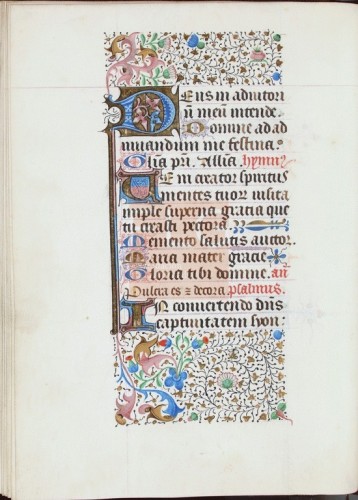 Deus in adiutori
ū meū intende.
Domine ad ad
iuuandum me festina.
Glīa prī. Alliā. hymnꝰ
Veni creator spiritus
mentes tuoꝝ uisita
imple superna gracia que
tu creasti pectora.
Memento salutis auctor.
Maria mater gracie
Gloria tibi domine. añ
Pulcra es ⁊ decora. psalmus.
In conuertendo dñs
captiuitatem syon.